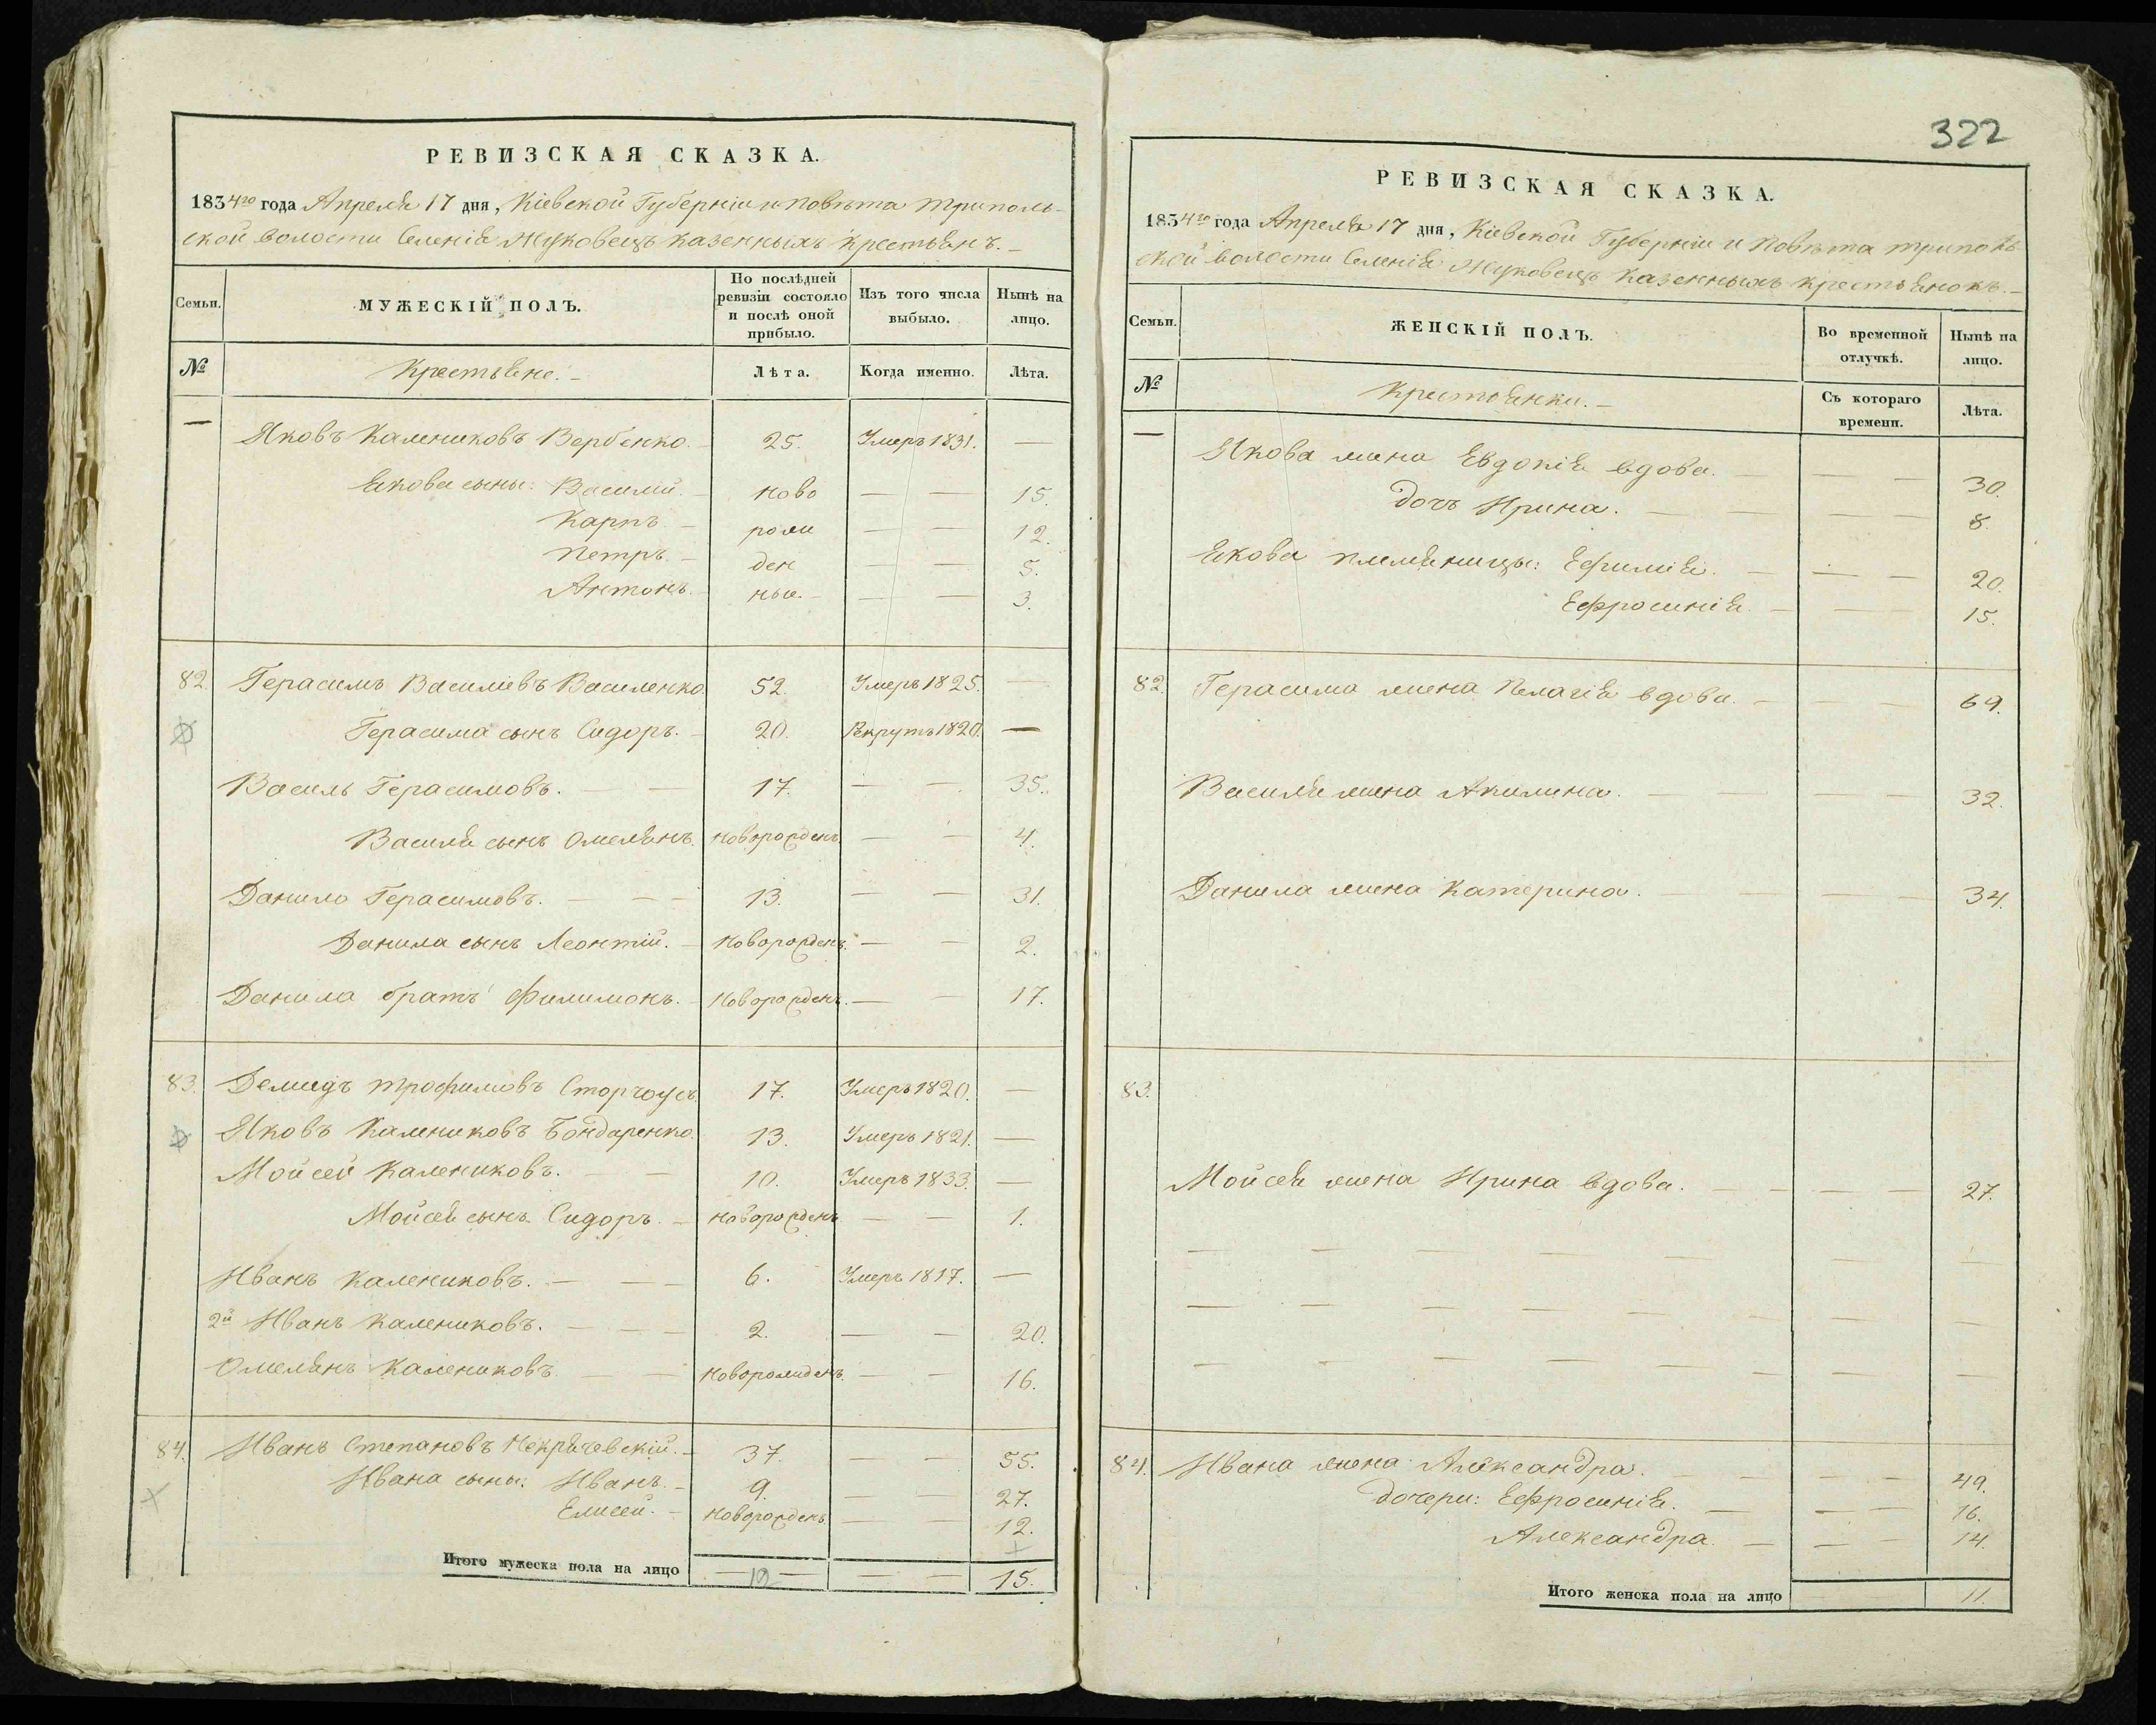 РЕВИЗСКАЯ СКАЗКА.
1834го года Апреля 17 дня, Кіевской Губерніи и повѣта Триполь-
ской волости Селенія Жуковецъ казенныхъ крестьянъ.-
Семьи. МУЖЕСКІЙ ПОЛЪ. По послѣдней ревизіи состояло и послѣ оной прибыло. Изъ того числа выбыло. Нынѣ на лицо.
№ Крестьяне.- Лѣта. Когда именно. Лѣта.
— Яковъ Калениковъ Вербенко. 25. Умеръ 1831. —
Якова сыны: Василий. ново — — 15.
Карпъ рож — — 12.
Петръ. ден — — 5.
Антонъ. ные. — — 3.
82. Герасимъ Василіевъ Василенко. 52. Умеръ 1825. —
Герасима сынъ Сидоръ. 20. Рекрутъ 1820. —
Василь Герасимовъ. 17. — — 35.
Василя сынъ Омелянъ. новорожденъ — — 4.
Данило Герасимовъ. 13. — — 31.
Данила сынъ Леонтій. новорожденъ. — — 2.
Данила братъ Филимонъ. новорожденъ. — — 17.
83. Демидъ Трофимовъ Сторчоусъ 17. Умеръ 1820. —
Яковъ Калениковъ Бондаренко. 13. Умеръ 1821. —
Мойсей Калениковъ. 10. Умеръ 1833. —
Мойсея сынъ Сидоръ. новорожденъ — — 1.
Иванъ Калениковъ. 6. Умеръ 1817. —
2й Иванъ Калениковъ. 2. — — 20.
Омелянъ Калениковъ новорожденъ. — — 16.
84. Иванъ Степановъ Некрячевскій. 37. — — 55.
Ивана сыны: Иванъ. 9. — — 27.
Елисей. новорожденъ — — 12.
Итого мужеска пола на лицо — — — 15.
322
РЕВИЗСКАЯ СКАЗКА.
1834го года Апреля 17 дня, Кіевской Губерніи и Повѣта Триполь
ской волости Селенія Жуковецъ казенныхъ крестьянокъ.-
Семьи. ЖЕНСКІЙ ПОЛЪ. Во временной отлучкѣ. Нынѣ на лицо.
№ Крестьянки.- Съ котораго времени. Лѣта.
— Якова жена Евдокія вдова. — — 30.
дочь Ирина. — — 8.
Якова племяницы: Ефимія. — — 20.
Ефросинія. — — 15.
82. Герасима жена Пелагія вдова. — — 69.
Василя жена Акилина. — — 32.
Данила жена Катерина. — — 34.
83.
Мойсея жена Ирина вдова. — — 27.
84. Ивана жена Александра. — — 49.
дочери: Ефросинія. — — 16.
Александра. — — 14.
Итого женска пола на лицо 11.